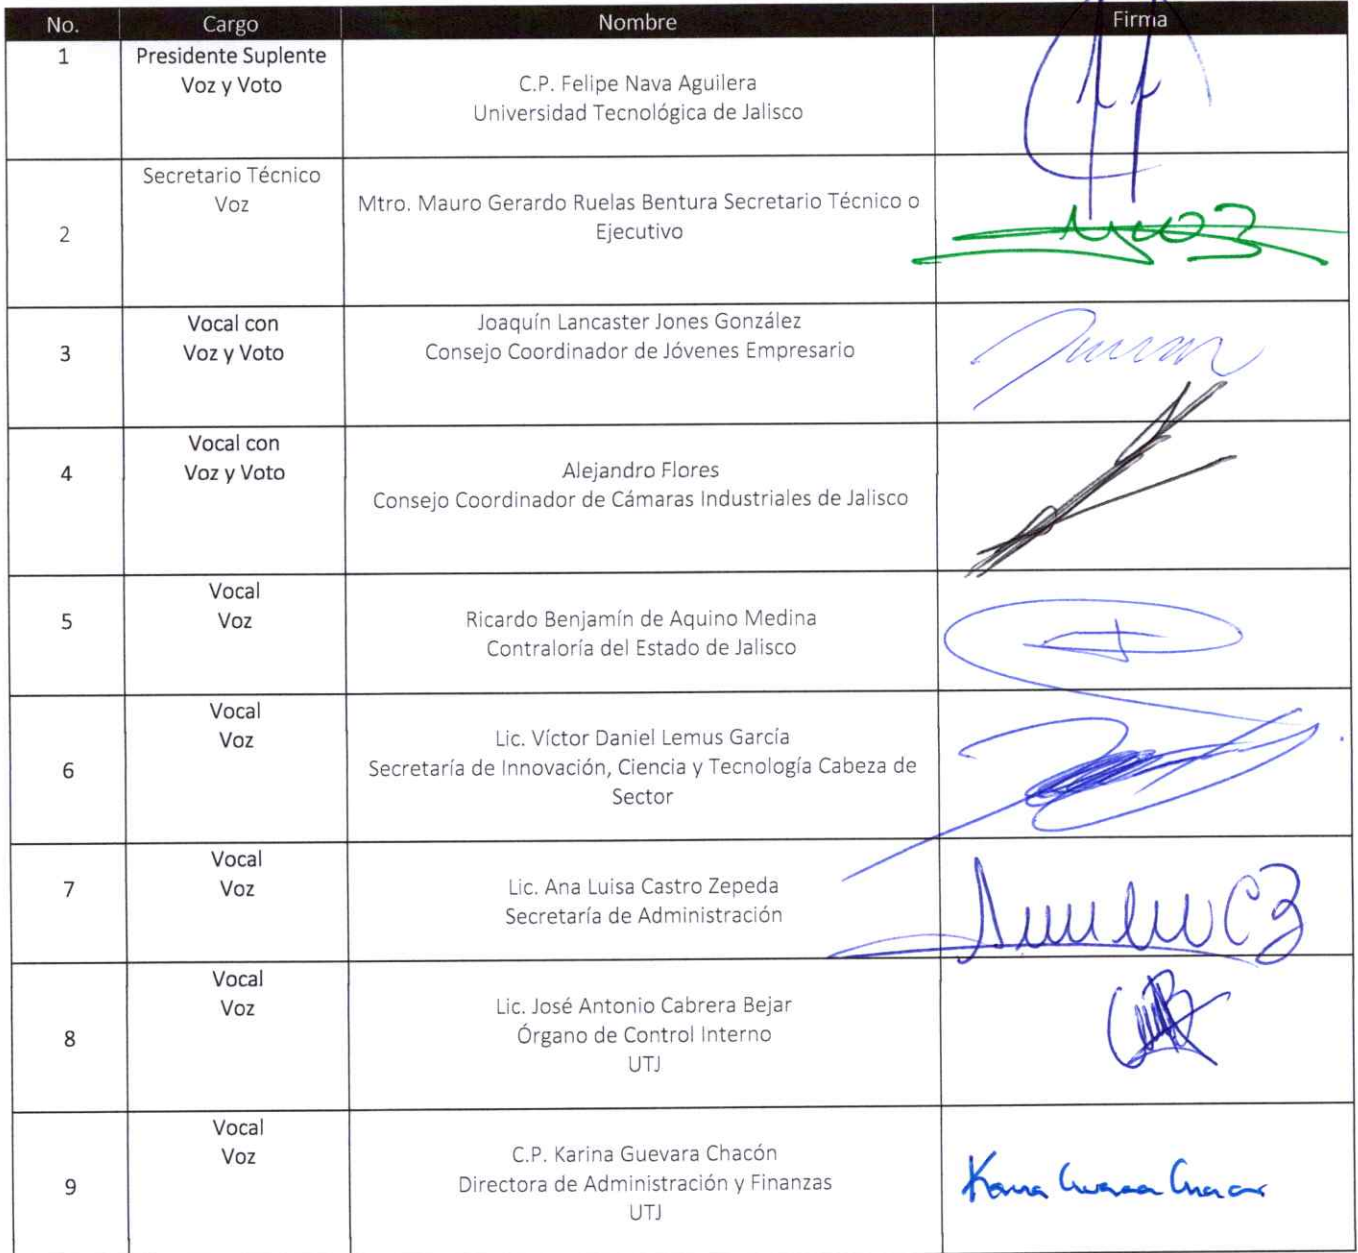 No. Cargo Nombre Firma
1 Presidente Suplente
Voz y Voto
C.P. Felipe Nava Aguilera
Universidad Tecnológica de Jalisco
2 Secretario Técnico
Voz
Mtro. Mauro Gerardo Ruelas Bentura Secretario Técnico o
Ejecutivo
3 Vocal con
Voz y Voto
Joaquín Lancaster Jones González
Consejo Coordinador de Jóvenes Empresario
4 Vocal con
Voz y Voto
Alejandro Flores
Consejo Coordinador de Cámaras Industriales de Jalisco
5 Vocal
Voz
Ricardo Benjamín de Aquino Medina
Contraloría del Estado de Jalisco
6 Vocal
Voz
Lic. Víctor Daniel Lemus García
Secretaría de Innovación, Ciencia y Tecnología Cabeza de
Sector
7 Vocal
Voz
Lic. Ana Luisa Castro Zepeda
Secretaría de Administración
8 Vocal
Voz
Lic. José Antonio Cabrera Bejar
Órgano de Control Interno
UTJ
9 Vocal
Voz
C.P. Karina Guevara Chacón
Directora de Administración y Finanzas
UTJ